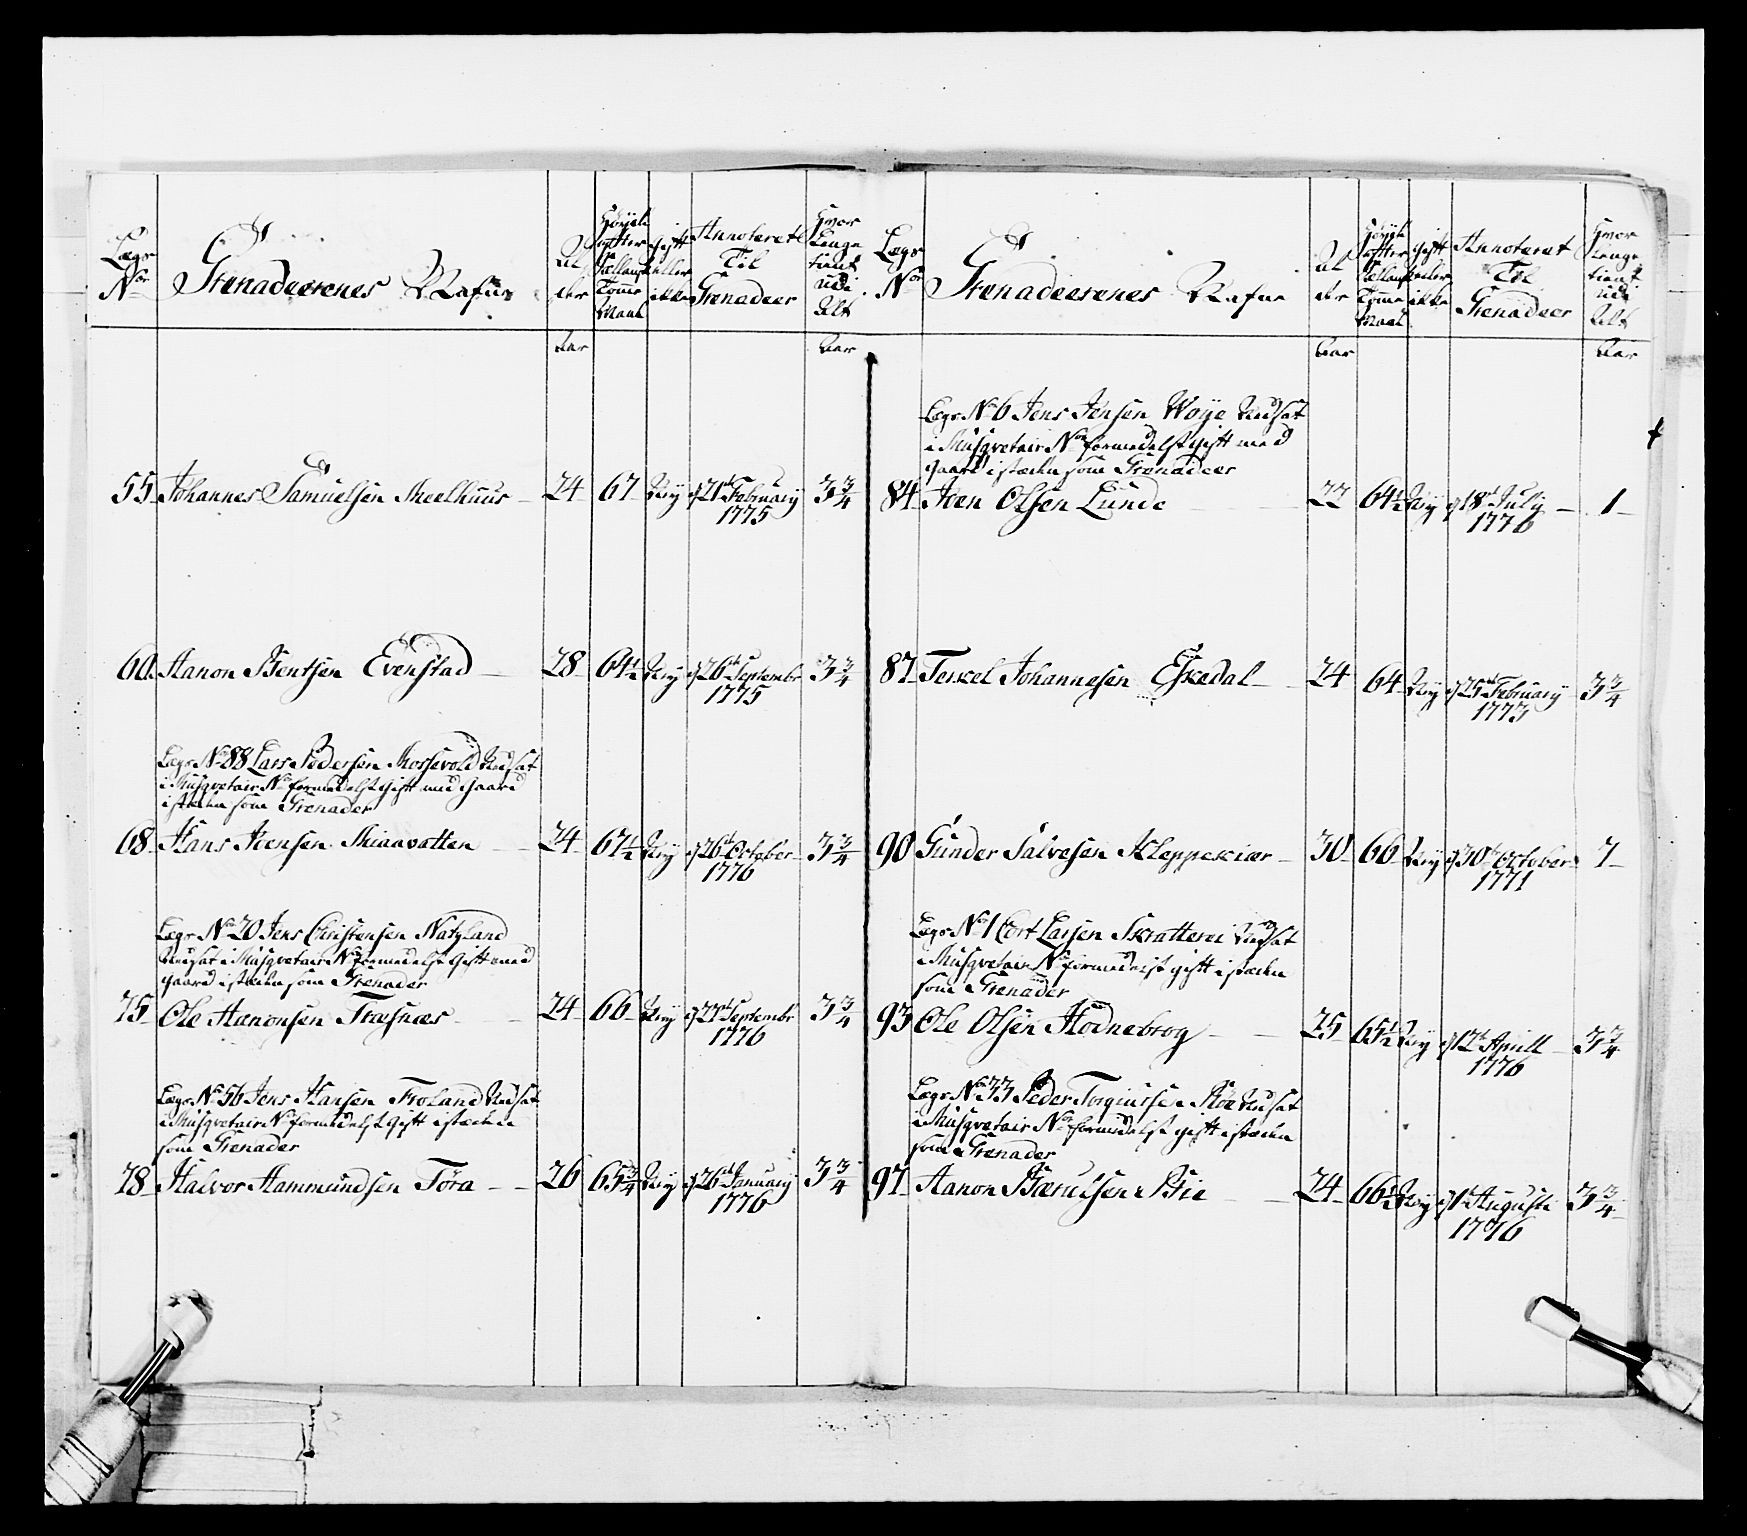 Lægs Nor
Grenadeerenes Nafne
Al der
Høyde efter Sællands Tomme Maal
gift eller ikke
Annoteret Til Grenadeer
Hvor Lenge tient udi Alt
Aar
Aar
55 Johannes Samuelsen Meelhuus 24 67 Ney d 21de February 1775 3 3/4
60 Aanon Bentsen Evenstad 28 64 1/2 Ney d 26de Septembr 1775 3 3/4
Lægs No 88 Lars Pedersen Mossevold Udsat
i Musqvetair No formedelst gift med Gaard
isteden som Grenader
68 Hans Jensen Miaavatten 24 67 1/2 Ney d 26de October 1776 3 3/4
Lægs No 20 Jens Christensen Natvland
Udsat i Musqvetair No formedelst gift med
gaard isteden som Grenader
75 Ole Aanonsen Træsnæs 24 66 Ney d 22de Septembr 1776 3 3/4
Lægs No 56 Jens Hansen Froland Udsat
i Musqvetair No formedelst gift isteden
som Grenader
78 Halvor Hammundsen Töra 26 65 3/4 Ney d 26de January 1776 3 3/4
Lægs Nor
Grenadeerenes Nafne
Al der
Høyde efter Sællands Tomme Maal
gift eller ikke
Annoteret Til Grenadeer
Hvor Lenge tient udi Alt
Aar
Aar
Lægs No 6 Jens Jensen Woye Udsat
i Musqvetair No formedelst gift med
gaard isteden som Grenadeer
84 Iven Olsen Lunde 22 64 1/2 Ney d 18de July 1776 1
87 Terkel Johannesen Eskedal 24 64 Ney d 25de February 1773 3 3/4
90 Gunder Salvesen Kleppekiær 30 66 Ney d 30te October 1771 7
Lægs No 1 Cort Larsen Skratterei Udsat
i Musqvetair No formedelst gift isteden
som Grenader
93 Ole Olsen Hodnebrog 25 65 1/2 Ney d 12te Aprill 1776 3 3/4
Lægs No 33 Peder Torgiussen Moe Udsat
i Musqvetair No formedelst gift isteden
som Grenader
97 Aanon Bærulsen Bie 24 66 1/2 Ney d 1te Augusti 1776 3 3/4